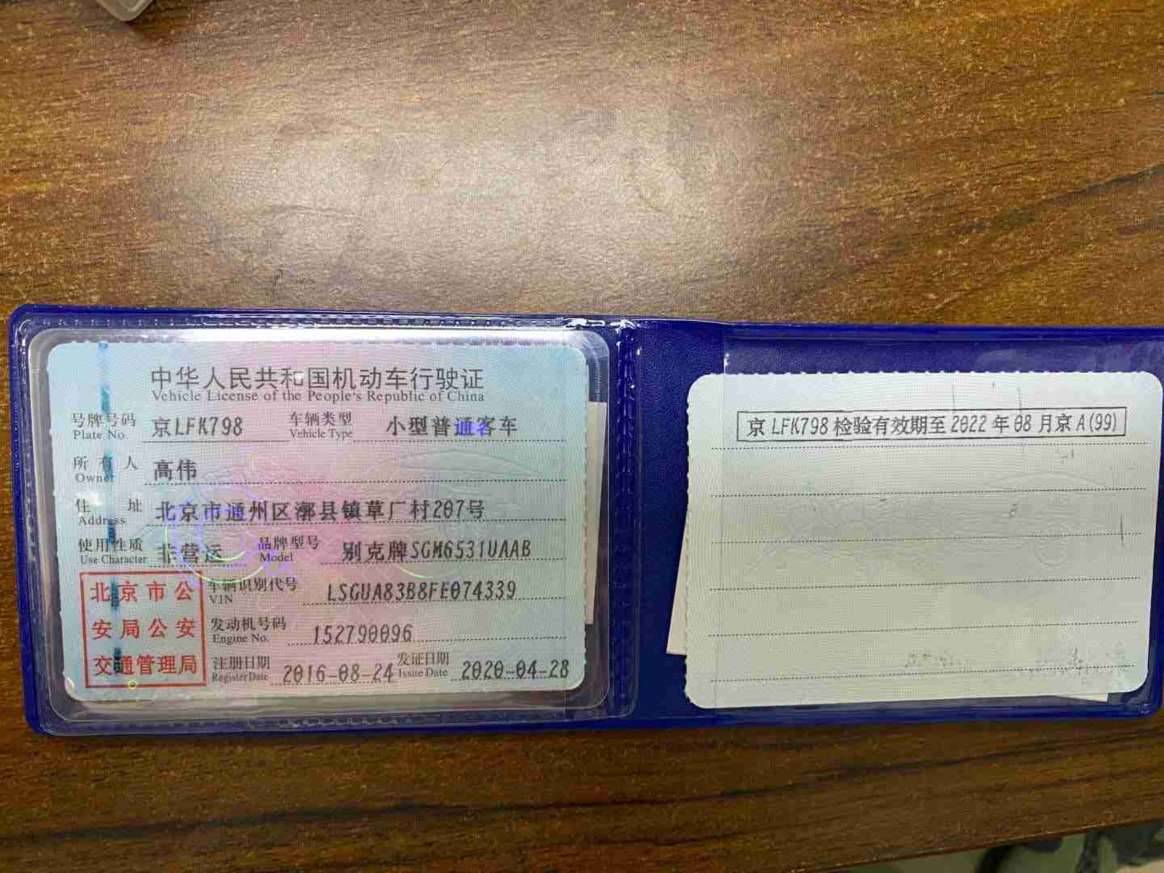 中华人民共和国机动车行驶证
Vehicle License of the People's Republic of China
号牌号码 京LFK798 车辆类型 小型普通客车
Plate No. Vehicle Type
所有人 高伟
Owner
住址 北京市通州区漷县镇草厂村207号
Address
使用性质 非营运 品牌型号 别克牌SGM6531UAAB
Use Character Model
北京市公安局公安交通管理局
车辆识别代号 LSGUA83B8FE074339
VIN
发动机号码 152790096
Engine No.
注册日期 2016-08-24 发证日期 2020-04-28
Register Date Issue Date
京LFK798检验有效期至2022年08月京A(99)